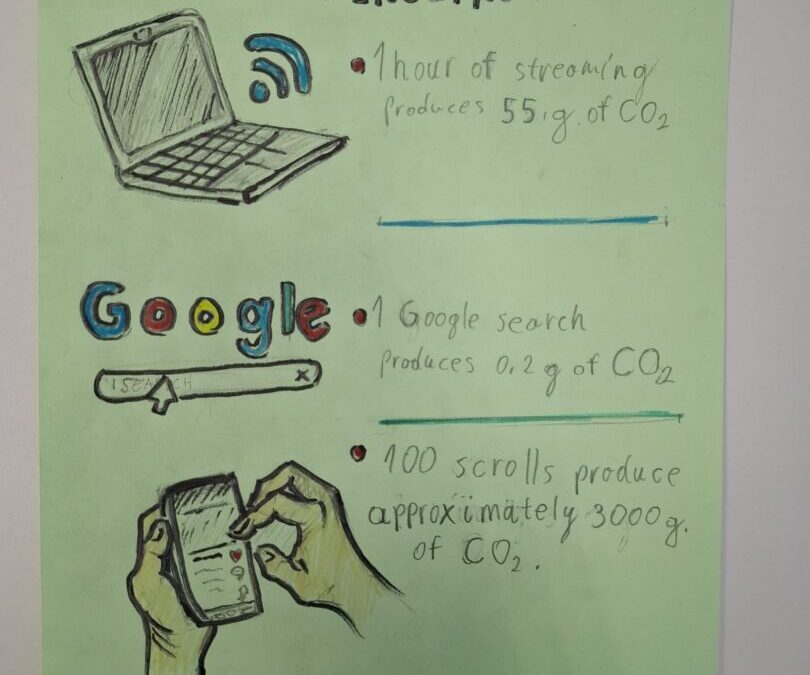 1 hour of streaming
produces 55 g. of CO₂
Google
1 Google search
produces 0.2 g of CO₂
SEARCH
x
100 scrolls produce
approximately 3000 g.
of CO₂.